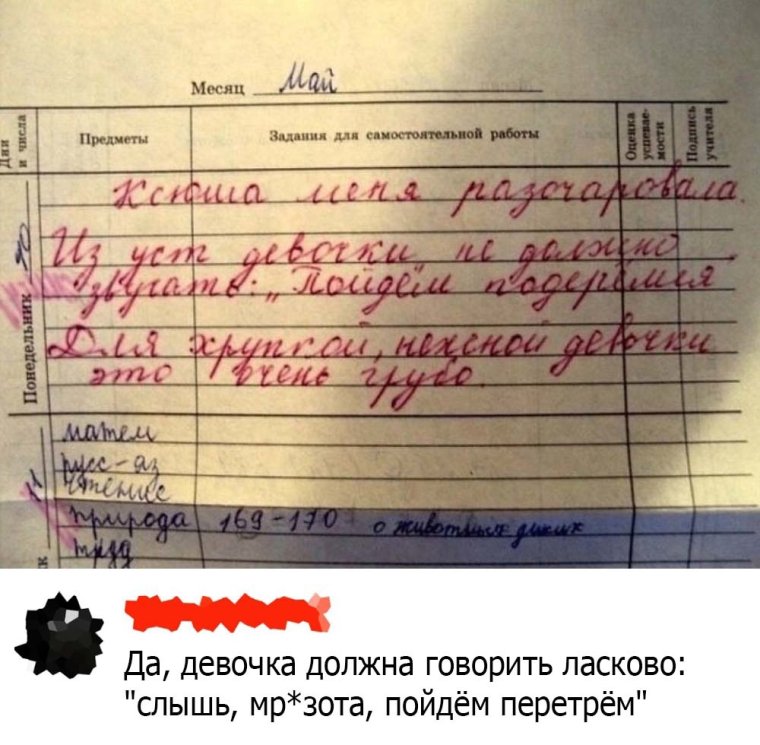 Месяц Май
Дни и числа Предметы Задания для самостоятельной работы Оценка успевае-мости Подпись учителя
Понедельник
Ксюша меня разочаровала.
Из уст девочки не должно
звучать: „Пойдём подерёмся
Для хрупкой, нежной девочки
это очень грубо.
11
матем
русс-яз
чтение
природа 169-170 о животных диких
труд
Да, девочка должна говорить ласково:
"слышь, мр*зота, пойдём перетрём"